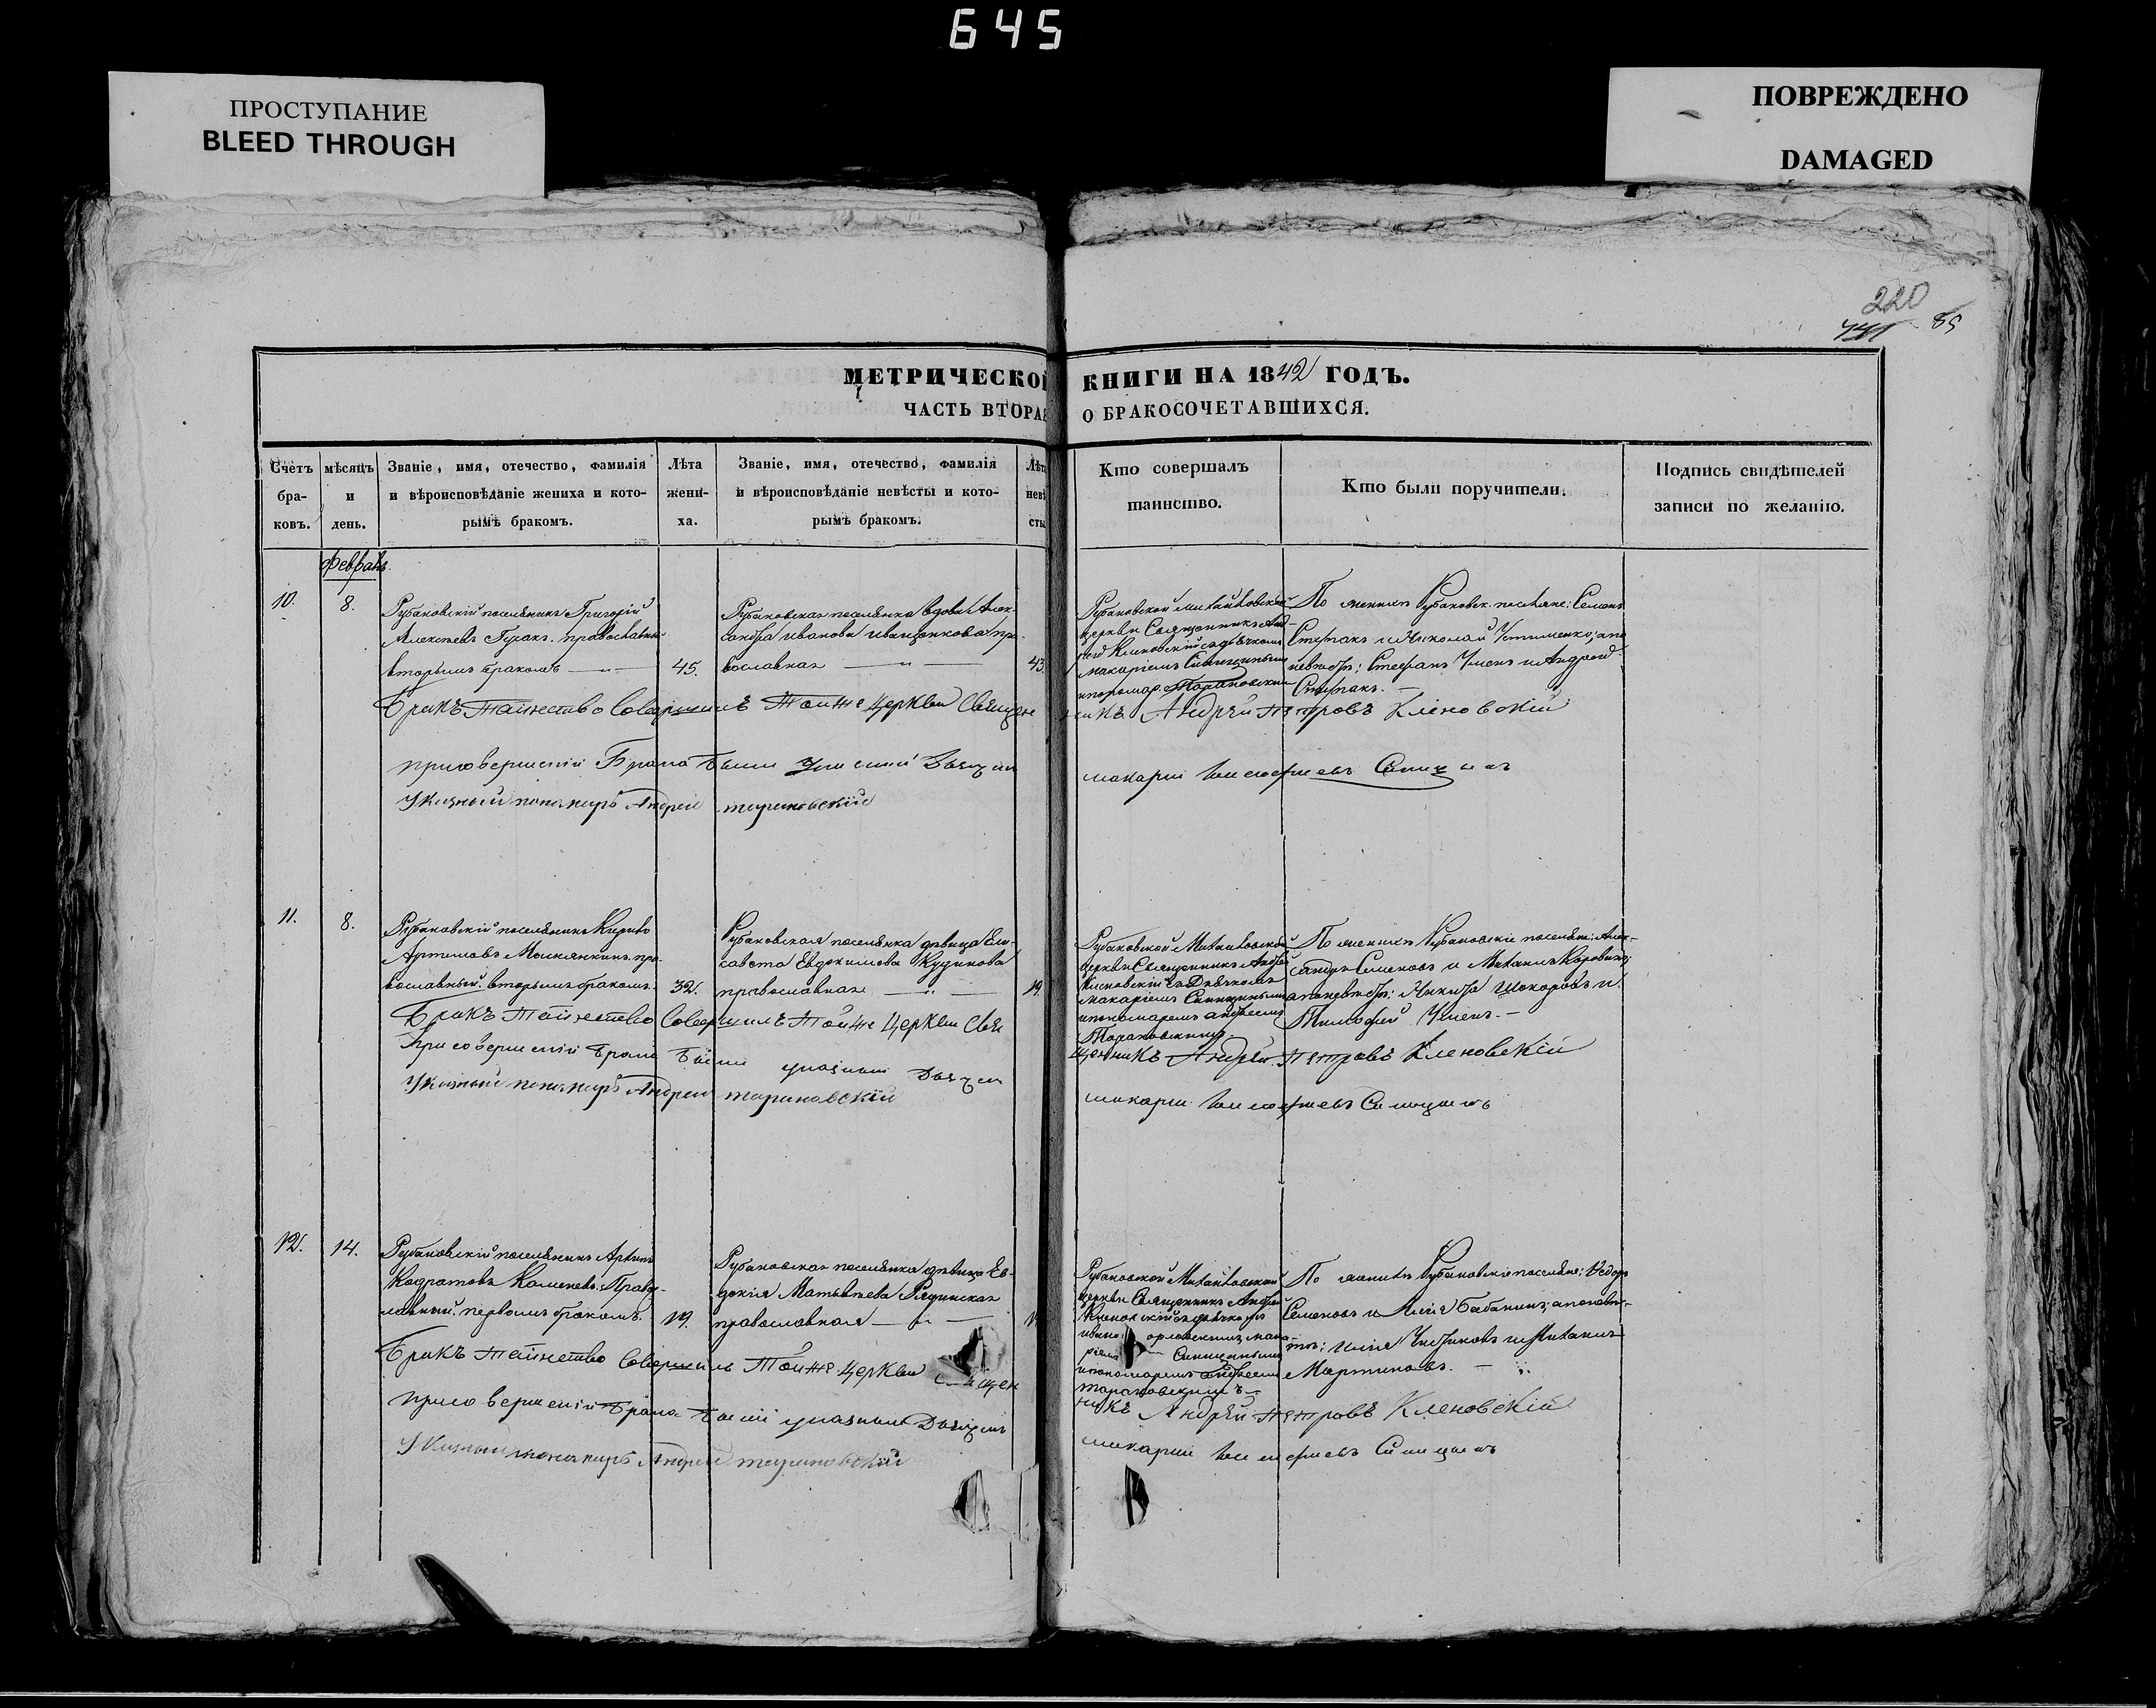 645
ПРОСТУПАНИЕ
BLEED THROUGH
ПОВРЕЖДЕНО
DAMAGED
220
85
МЕТРИЧЕСКОЙ КНИГИ НА 1842 ГОДЪ.
ЧАСТЬ ВТОРАЯ О БРАКОСОЧЕТАВШИХСЯ.
Счетъ бра-ковъ.
мѣсяцъ и день.
Званіе, имя, отечество, фамилія
и вѣроисповѣданіе жениха и кото-
рымъ бракомъ.
Лѣта жени-ха.
Званіе, имя, отечество, фамилія
и вѣроисповѣданіе невѣсты и кото-
рымъ бракомъ.
Лѣта невѣ сты
Кто совершалъ
таинство.
Кто были поручители.
Подпись свидѣтелей
записи по желанію.
Февраль.
10.
8.
Рубановскій поселянинъ Григорій
Алексѣевъ православный
вторымъ бракомъ
45.
Рубановская поселянка вдова Алек-
сандра Иванова Иващенкова пра-
вославная
43.
Рубановской Михайловской
церкви Священникъ Анд-
рей Кленовскій съ дьячкомъ
Макаріемъ Синицынымъ
и пономар. Тарановскимъ
По женихѣ Рубановск. поселяне: Семенъ
и Николай Устименко; а по
невѣстѣ: Стефанъ и Андрей
Бракъ Таинство Совершилъ Тойже Церкви Священ
никъ Андрѣй Петровъ Кленовскій
при совершеніи Брака были
Макарій Синицынъ
Указный пономарь Андрей Тарановскій
11.
8.
Рубановскій поселянинъ
Артимовъ пра-
вославный. вторымъ бракомъ.
32.
Рубановская поселянка дѣвица Ели-
савета Евдокимова Кудинова
православная
19.
Рубановской Михайловской
церкви Священникъ Андрей
Кленовскій съ Дьячкомъ
Макаріемъ Синицынымъ
и пономаремъ Андреемъ
Тарановскимъ.
По женихѣ Рубановскіе поселяне: Алек-
сандръ Семеновъ и Михаилъ
а по невѣстѣ: Никита и
Тимофей
Бракъ Таинство Совершилъ Тойже Церкви Свя
щенникъ Андрѣй Петровъ Кленовскій
При совершеніи брака были указный Дьячекъ
Макарій Синицынъ
Указный пономарь Андрей Тарановскій
12.
14.
Рубановскій поселянинъ Архипъ
Кодратовъ Каменевъ. Правос-
лавный. первымъ бракомъ.
19.
Рубановская поселянка дѣвица Ев-
докія Матвѣева
православная
Рубановской Михайловской
церкви Священникъ Андрей
Кленовскій съ дьячкомъ
Синицынымъ
и пономаремъ Андреемъ
Тарановскимъ
По женихѣ Рубановскіе поселяне: Ѳедоръ
Семеновъ и Илія Бабанинъ; а по невѣс-
тѣ: Илія и Михаилъ
Мартиновъ.
Бракъ Таинство Совершилъ Тойже Церкви Священ
никъ Андрѣй Петровъ Кленовскій
при совершеніи брака были указный Дьячекъ
Макарій Синицынъ
Указный пономарь Андрей Тарановскій